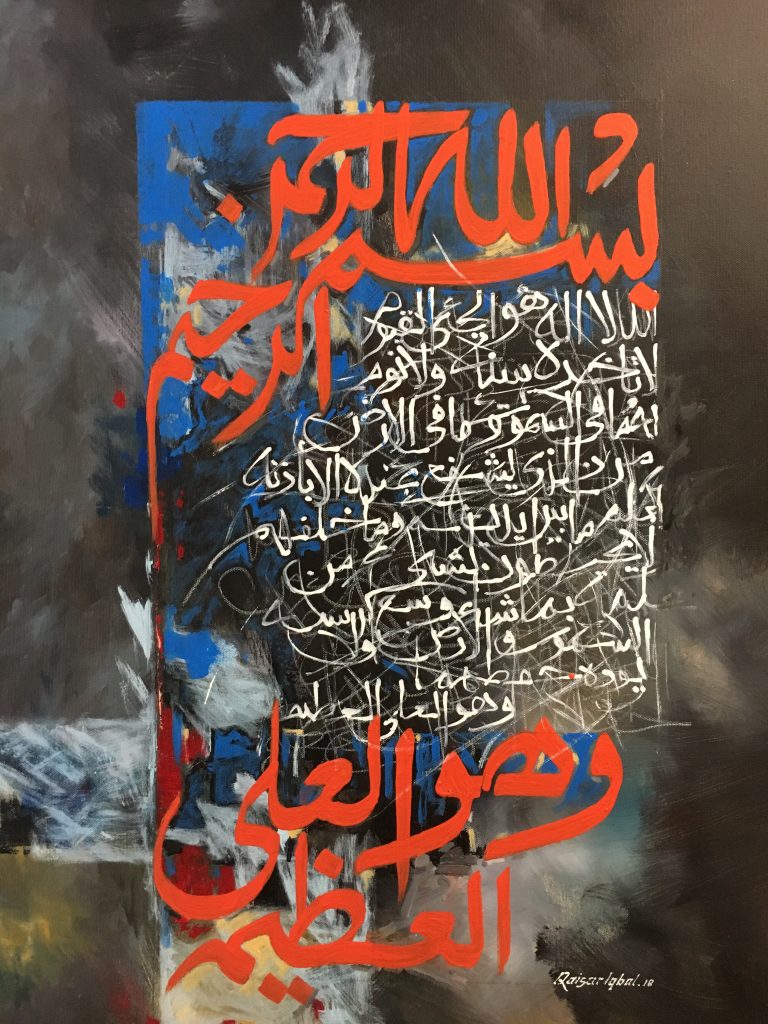 بسم الله الرحمن
الرحيم
الله لا اله هو الحي القيوم
لا تاخذه سنة ولا نوم
له ما في السموت وما في الارض
من الذي يشفع عنده الا باذنه
يعلم ما بين ايديهم وما خلفهم
يحيطون بشيء من
بما شاء وسع كرسيه
السموت والارض ولا
يوده حفظهما
وهو العلي العظيم
وهو العلي
العظيم
Qaisar Iqbal. 18